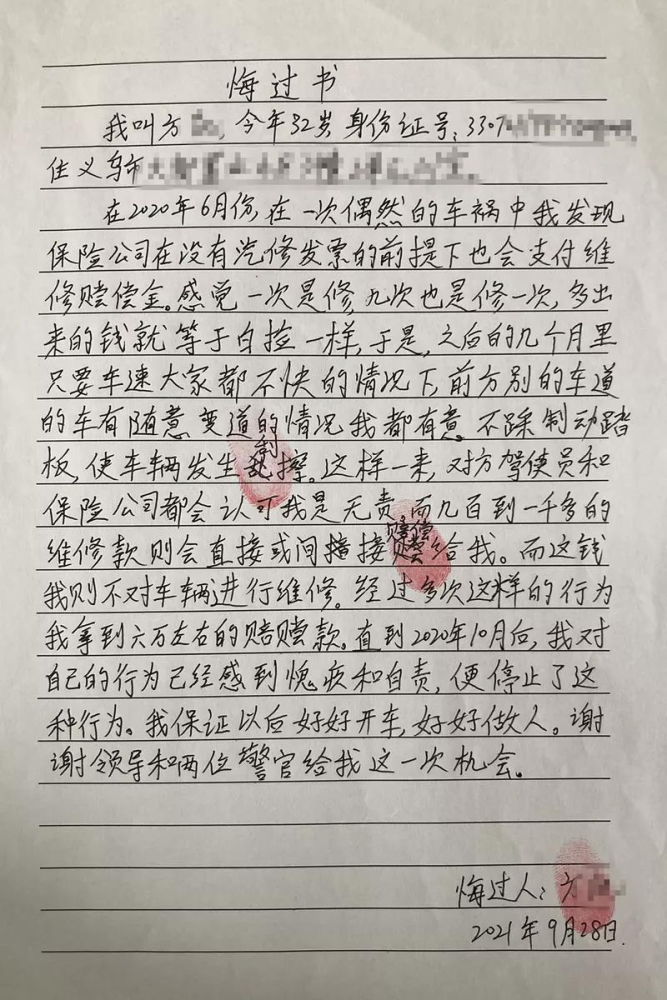 悔过书
我叫方 , 今年32岁 身份证号:3307
住义乌市
在2020年6月份,在一次偶然的车祸中我发现
保险公司在没有汽修发票的前提下也会支付维
修赔偿金。感觉一次是修,九次也是修一次,多出
来的钱就等于白捡一样,于是,之后的几个月里
只要车速大家都不快的情况下,前方别的车道
的车有随意变道的情况我都有意不踩制动踏
板,使车辆发生刮擦。这样一来,对方驾使员和
保险公司都会认可我是无责。而几百到一千多的
维修款则会直接或间接赔偿给我。而这钱
我则不对车辆进行维修。经过多次这样的行为
我拿到六万左右的赔赏款。直到2020年10月后,我对
自己的行为已经感到愧疚和自责,便停止了这
种行为。我保证以后好好开车,好好做人。谢
谢领导和两位警官给我这一次机会。
悔过人:方
2021年9月28日.